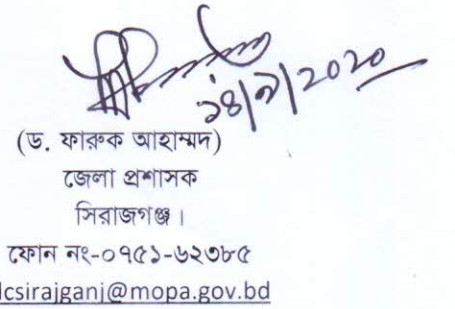 ১৪/৯/২০২০
(ড. ফারুক আহাম্মদ)
জেলা প্রশাসক
সিরাজগঞ্জ।
ফোন নং-০৭৫১-৬২৩৮৫
dcsirajganj@mopa.gov.bd